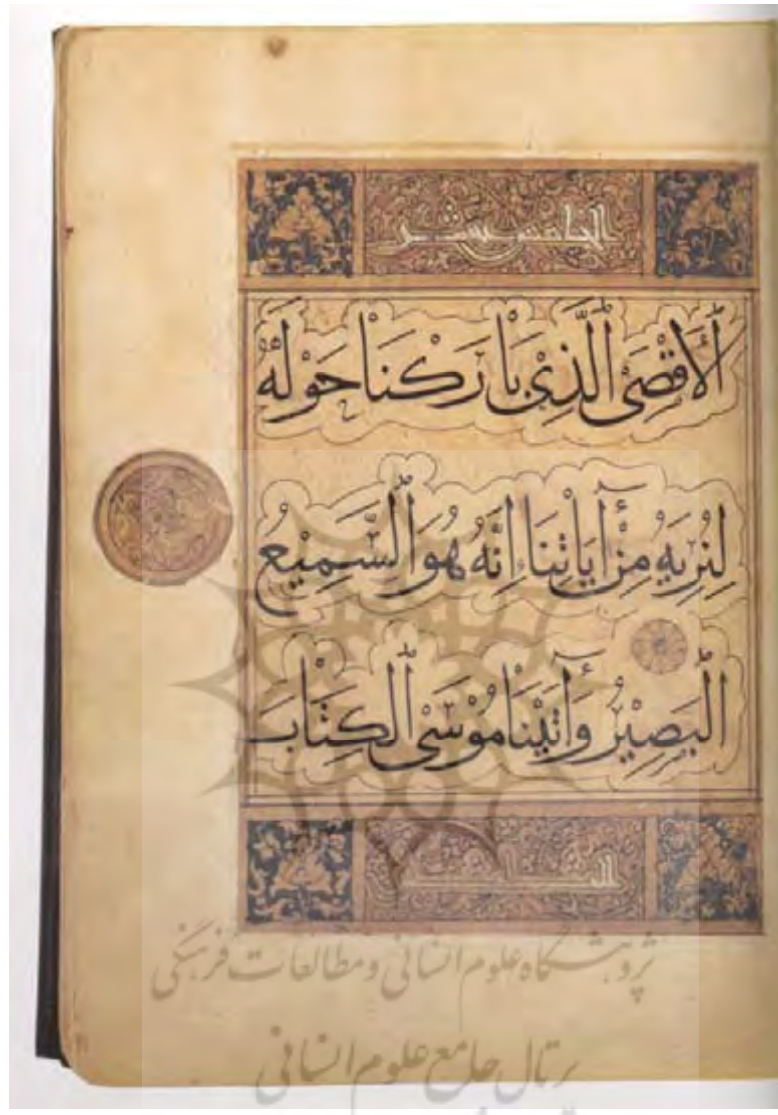 الخامس عشر
ٱلْأَقْصَى ٱلَّذِىْ بَاْرَكْنَا حَوْلَهُ
لِنُرِيَهُ مِنْ آيَاتِنَا إِنَّهُ هُوَ ٱلسَّمِيْعُ
ٱلْبَصِيْرُ وَآتَيْنَا مُوْسَى ٱلْكِتَابَ
پژوهشگاه علوم انسانی و مطالعات فرهنگی
پرتال جامع علوم انسانی